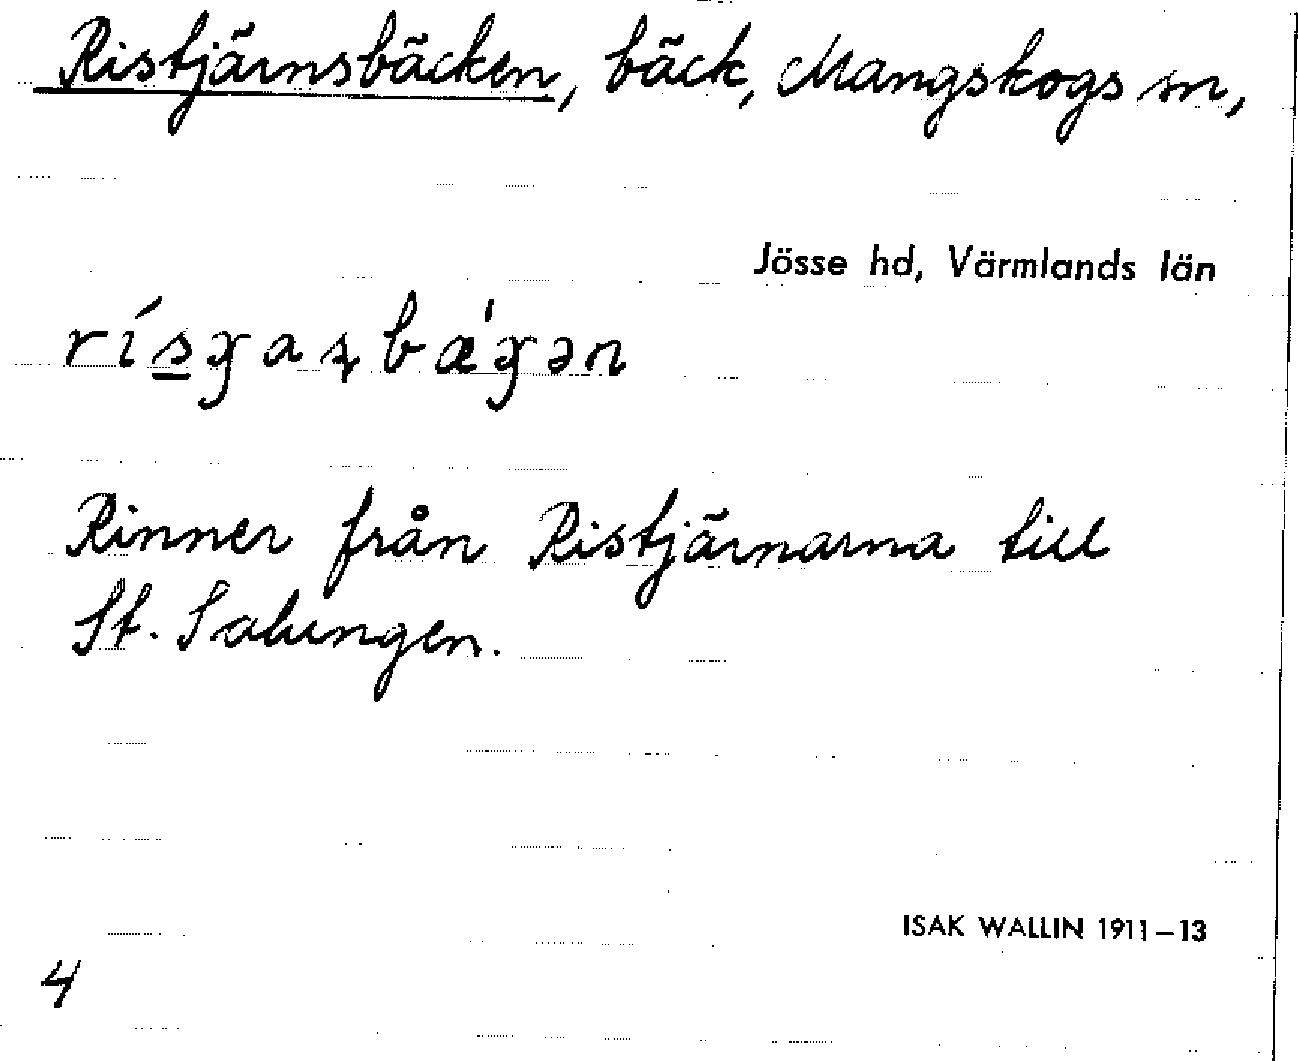 Ristjärnsbäcken, bäck, Mangskogs sn,
Jösse hd, Värmlands län
Rinner från Ristjärnarna till
St. Salungen.
ISAK WALLIN 1911–13
4